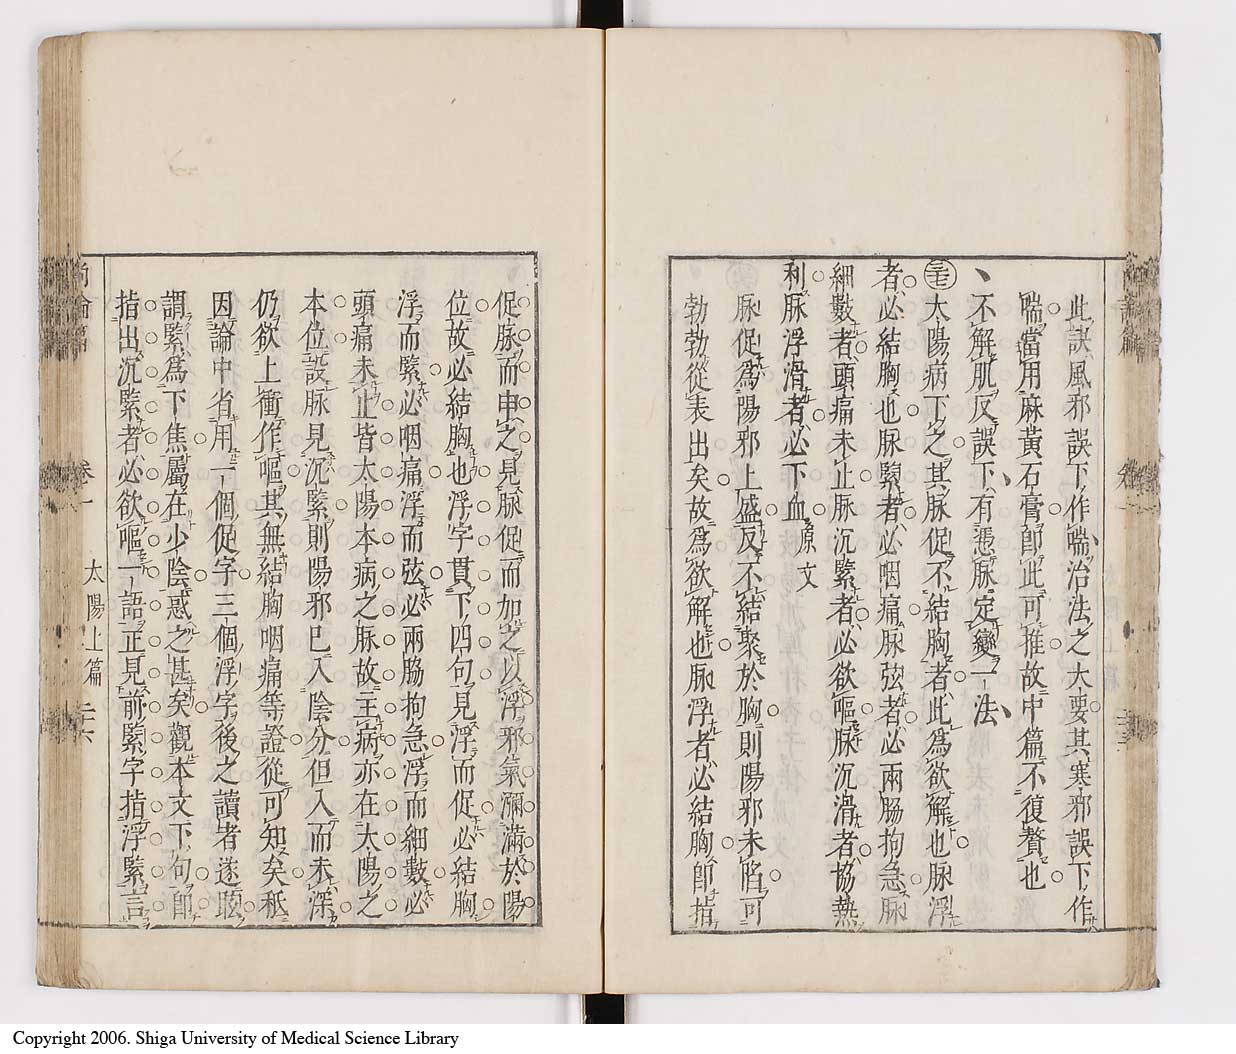 此訣風邪誤下作喘治法之大要其寒邪誤下作
喘當用麻黃石膏卽此可推故中篇不復贅也
不解肌反誤下有憑脉定變一法
三七 太陽病下之其脉促不結胸者此爲欲解也脉浮
者必結胸也脉緊者必咽痛脉弦者必兩脇拘急脉
細數者頭痛未止脉沉緊者必欲嘔脉沉滑者協熱
利脉浮滑者必下血原文
脉促爲陽邪上盛反不結聚於胸則陽邪未陷可
勃勃從表出矣故爲欲解也脉浮者必結胸卽指
促脉而申之見脉促而加之以浮邪氣瀰滿於陽
位故必結胸也浮字貫下四句見浮而促必結胸
浮而緊必咽痛浮而弦必兩脇拘急浮而細數必
頭痛未止皆太陽本病之脉故主病亦在太陽之
本位設脉見沉緊則陽邪已入陰分但入而未深
仍欲上衝作嘔其無結胸咽痛等證從可知矣秪
因論中省用一個促字三個浮字後之讀者遂眩
謂緊爲下焦屬在少陰惑之甚矣觀本文下句卽
指出沉緊者必欲嘔一語正見前緊字指浮緊言
尚論篇 卷一 太陽上篇 二十六